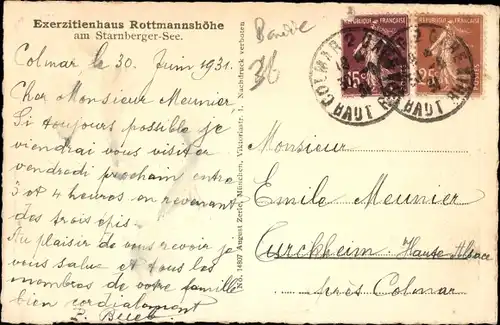 Exerzitienhaus Rottmannshöhe
am Starnberger-See.
Colmar le 30 Juin 1931.
Cher Monsieur Meunier,
Si toujours possible je
viendrai vous visiter
vendredi prochain entre
3 et 4 heures en revenant
des trois épis.
Au plaisir de vous revoir je
vous salue et tous les
membres de votre famille
bien cordialement
No. 14897 August Zerle, München, Viktoriastr. 1. Nachdruck verboten
36
REPUBLIQUE FRANÇAISE
15c
REPUBLIQUE FRANÇAISE
25c
COLMAR
HAUT RHIN
Monsieur
Emile Meunier
Turckheim Haute Alsace
près Colmar